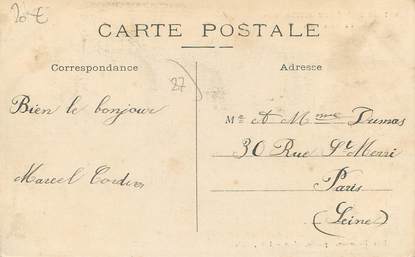 20 €
CARTE POSTALE
Correspondance
Adresse
27
Bien le bonjour
Marcel
Mr et Mme Dumas
30 Rue St Merri
Paris
(Seine)